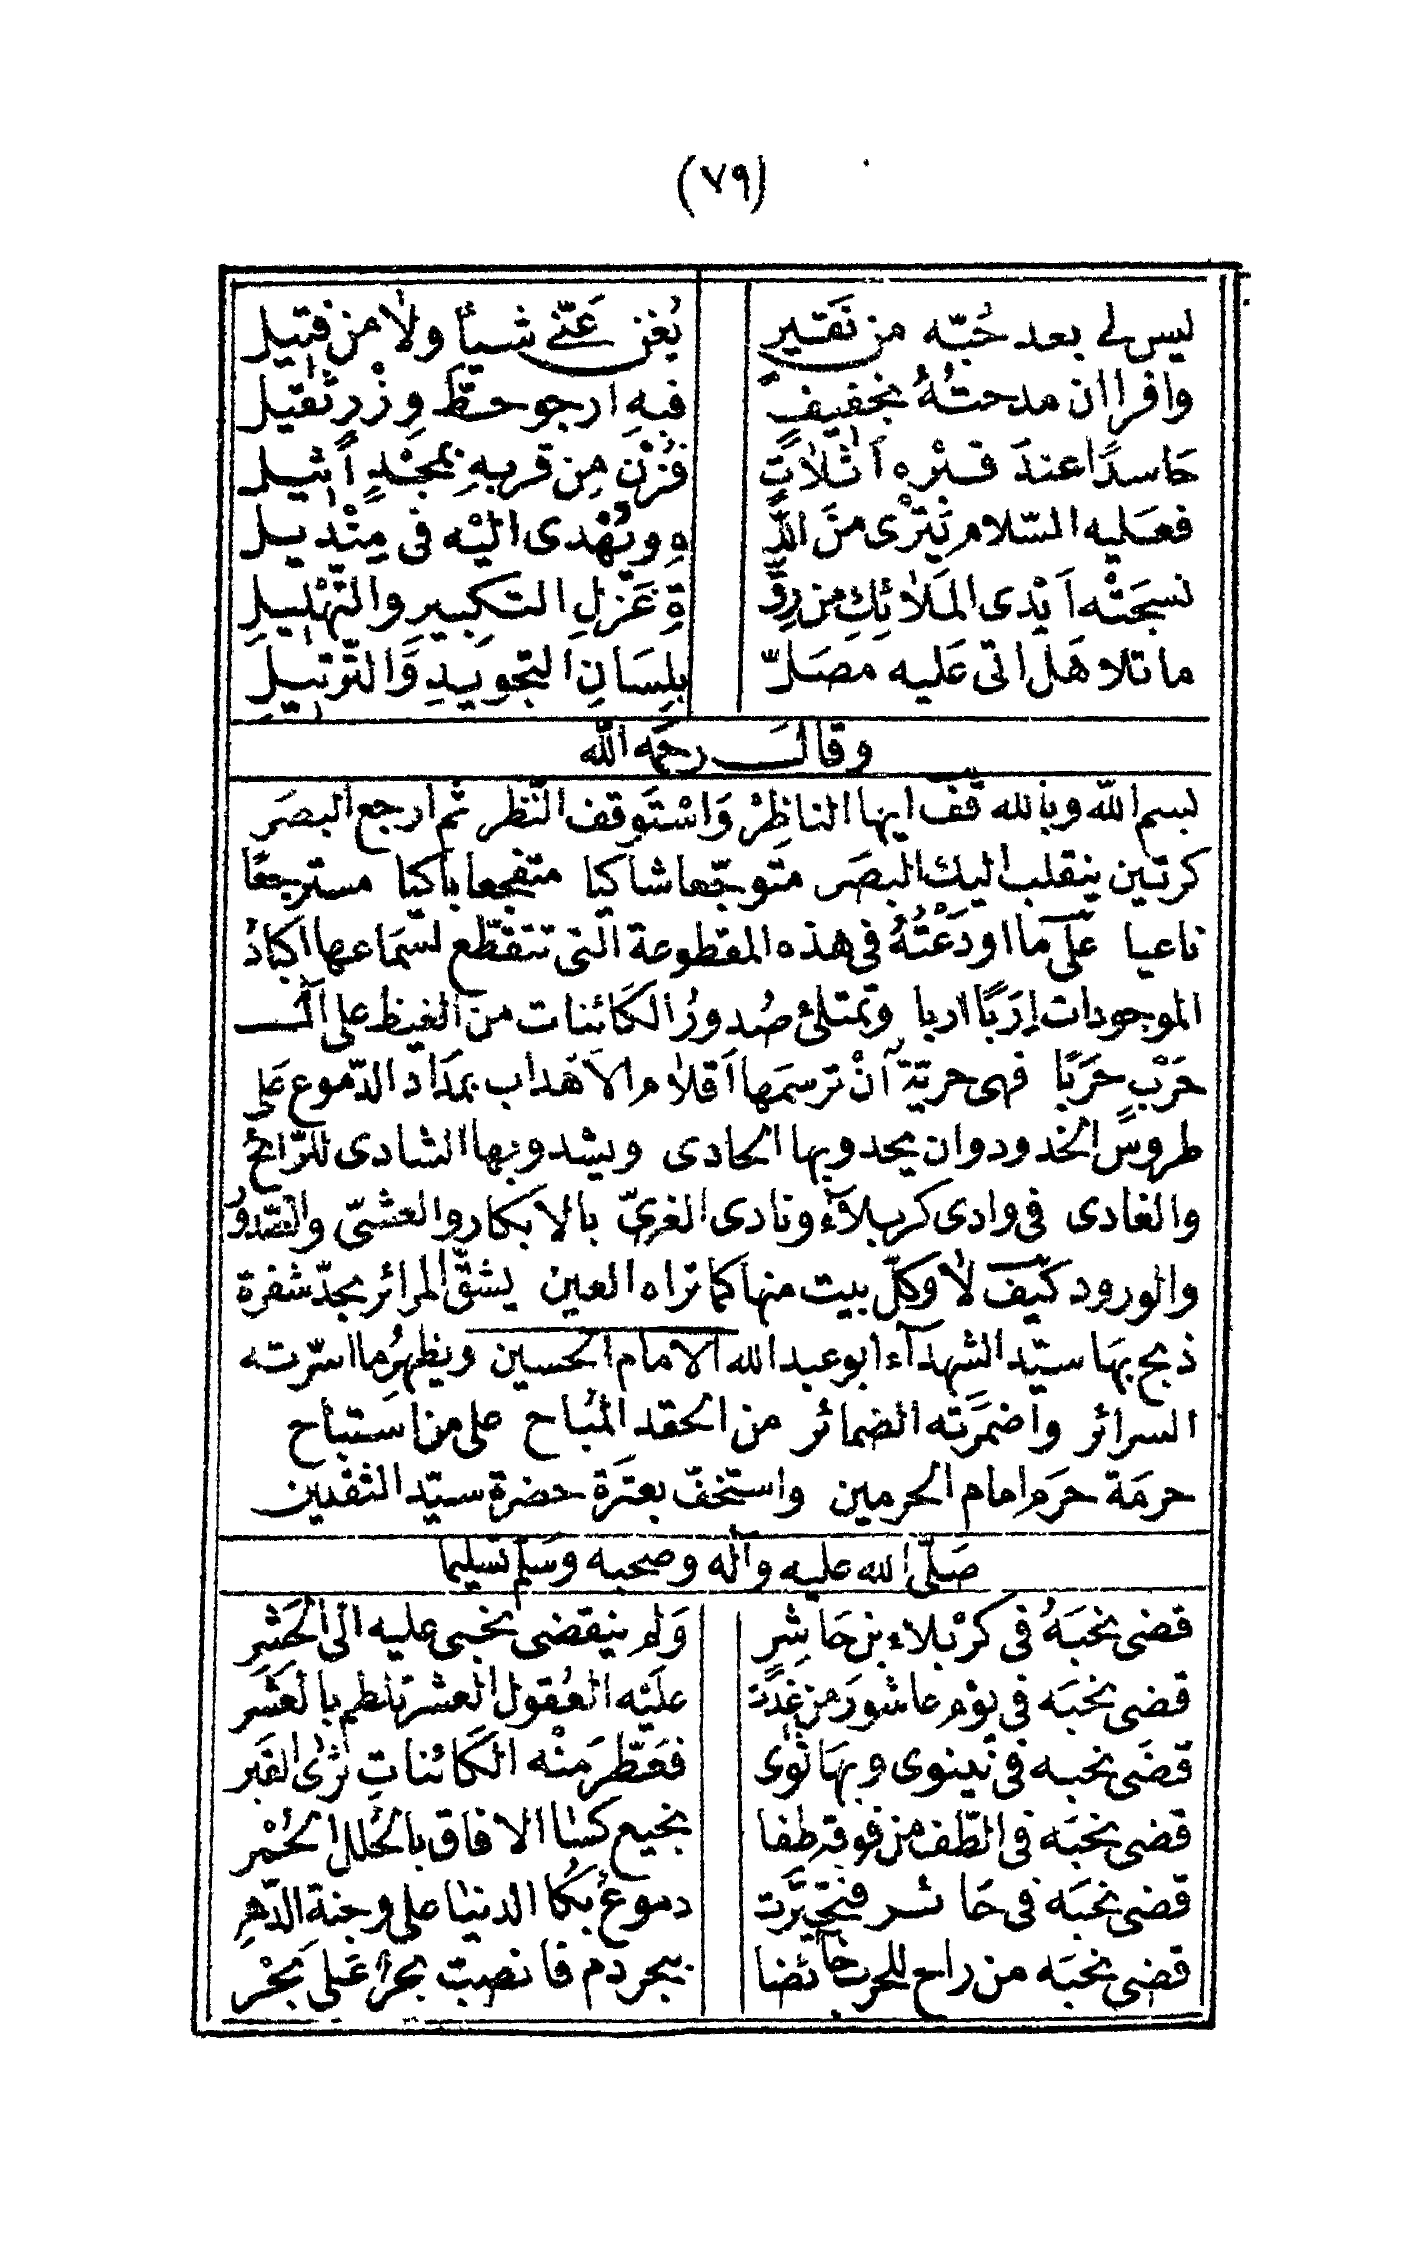 (٧٩)
ليس لى بعد حُبّه من نَقَيرٍ يُغنِ عَنّى شيأً ولا من فتيل
وافرا ان مدحتهُ بخفيفٍ فبهِ ارجو حظّ وِزْرٍ ثَقيل
حَاسدًا عندَ قبْره أثلاتٍ فُزْنَ مِن قربهِ بمَجْدٍ أثيل
فعَليه السّلام تَتْرْى منَ اللّ هِ ويُهْدى اليْه فى مِنْديل
نسجَتْه اَيْدى المَلائكِ من رِقَّ ةِ غَزْلِ التكبير والتّهْليلِ
ما تلا هَل اتى عَليه مصَلّ بلِسَانِ التجويدِ وَالتَّرتيل
وقال رحمه الله
بسم الله وبالله قف ايها الناظِرْ وَاسْتَوقف النّظر ثم ارجع البصَر
كرتين ينقلب اليك البصَر متوجّعا شاكيا متفجعا باكيا مسترجعًا
ناعيا على ما اودَعْتُهُ فى هذه المقطوعة التى تتقطّع لسَماعها اكبادُ
الموجودات اِرَبًا اربا وتمتلئ صُدورُ الكَائنات من الغيظ على ال
حَرْبٍ حَرَبًا فهى حريّة أنْ ترسمَها اَقلام الاَهداب بمدَاد الدّموع عَلى
طروس الخدود وان يحدو بها الحادى ويشدو بها الشادى للرّائح
والغادى فى وادى كربلآء ونادى الغرىّ بالابكار والعشىّ والصّدورُ
والورود كَيف لا وكلّ بيت منها كما تراه العين يشقّ المرائر بحدّ شفرة
ذبح بهَا سيّد الشهدآء ابو عبد الله الامام الحسين ويظهِرُ ما اسرّته
السرائر واضمَرَته الضمائر من الحقد المُباح على من استباح
حرمَة حرَم امام الحرمين واستخفّ بعترَة حضرة سيّد الثقلين
صَلّى الله عليه واله وصحبه وسَلم تسليما
قضى نحبَهُ فى كرْبلاء بن حَاشِرٍ وَلم ينقضى نحبى عليه الى الحَشرِ
قضى نحبَه فى يوْم عاشورَ من غَدَت علَيْه العُقول العشر تلطم بالعَشر
قضَى نحبه فى نَينوى وبهَا ثَوٰى فعَطّرَ منْه الكَائناتِ ثرٰى القَبر
قضى نحبَه فى الطّف من فوقه طفا نجيع كسٰا الافاق بالحُلل الحُمْر
قضى نحبَه فى حَائر فتحَيّرَت دموعُ بُكا الدنيا على وجنة الدّهرِ
قضى نحبَه من راح للحرب خائضا ببحر دم فانصبّ بحرٌ عَلى بَحْر